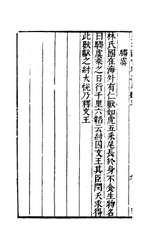 騶虞
林氏國在海外有仁獸如虎五采尾長於身不食生物名
曰騶虞乘之日行千里六韜云紂囚文王其臣閎夭求得
此獸獻之紂大悅乃釋文王